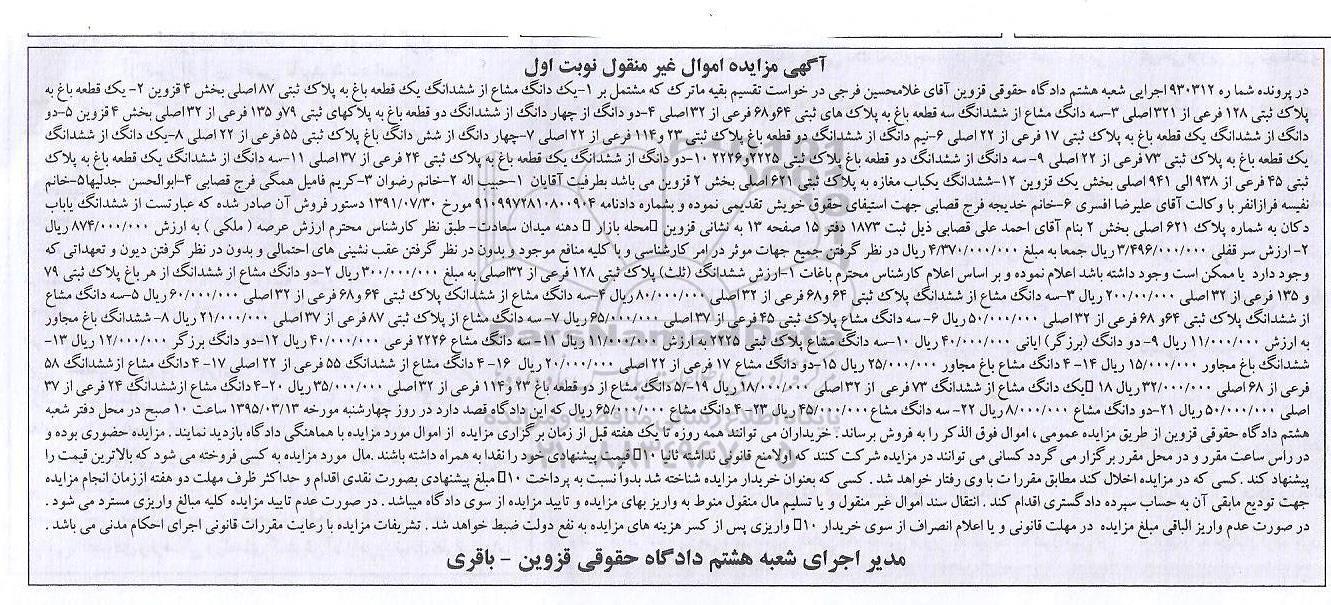 آگهی مزایده اموال غیر منقول نوبت اول
در پرونده شما ره ۹۳۰۳۱۲ اجرایی شعبه هشتم دادگاه حقوقی قزوین آقای غلامحسین فرجی در خواست تقسیم بقیه ماترک که مشتمل بر ۱-یک دانگ مشاع از ششدانگ یک قطعه باغ به پلاک ثبتی ۸۷ اصلی بخش ۴ قزوین ۲- یک قطعه باغ به
پلاک ثبتی ۱۲۸ فرعی از ۳۲۱ اصلی ۳-سه دانگ مشاع از ششدانگ سه قطعه باغ به پلاک های ثبتی ۶۴و۶۸ فرعی از ۳۲ اصلی ۴-دو دانگ از چهار دانگ از ششدانگ دو قطعه باغ به پلاکهای ثبتی ۷۹و ۱۳۵ فرعی از ۳۲ اصلی بخش ۴ قزوین ۵-دو
دانگ از ششدانگ یک قطعه باغ به پلاک ثبتی ۱۷ فرعی از ۲۲ اصلی ۶-نیم دانگ از ششدانگ دو قطعه باغ پلاک ثبتی ۲۳ و۱۱۴ فرعی از ۲۲ اصلی ۷-چهار دانگ از شش دانگ باغ پلاک ثبتی ۵۵ فرعی از ۲۲ اصلی ۸-یک دانگ از ششدانگ
یک قطعه باغ به پلاک ثبتی ۷۳ فرعی از ۲۲ اصلی ۹- سه دانگ از ششدانگ دو قطعه باغ پلاک ثبتی ۲۲۲۵و۲۲۲۶ ۱۰-دو دانگ از ششدانگ یک قطعه باغ به پلاک ثبتی ۲۴ فرعی از ۳۷ اصلی ۱۱-سه دانگ از ششدانگ یک قطعه باغ به پلاک
ثبتی ۴۵ فرعی از ۹۳۸ الی ۹۴۱ اصلی بخش یک قزوین ۱۲-ششدانگ یکباب مغازه به پلاک ثبتی ۶۲۱ اصلی بخش ۲ قزوین می باشد بطرفیت آقایان ۱-حبیب اله ۲-خانم رضوان ۳-کریم فامیل همگی فرج قصابی ۴-ابوالحسن جدلیها۵-خانم
نفیسه فرازانفر با وکالت آقای علیرضا افسری ۶-خانم خدیجه فرج قصابی جهت استیفای حقوق خویش تقدیمی نموده و بشماره دادنامه ۹۱۰۹۹۷۲۸۱۰۸۰۰۹۰۴ مورخ ۱۳۹۱/۰۷/۳۰ دستور فروش آن صادر شده که عبارتست از ششدانگ یاباب
دکان به شماره پلاک ۶۲۱ اصلی بخش ۲ بنام آقای احمد علی قصابی ذیل ثبت ۱۸۷۳ دفتر ۱۵ صفحه ۱۳ به نشانی قزوین محله بازار دهنه میدان سعادت- طبق نظر کارشناس محترم ارزش عرصه ( ملکی ) به ارزش ۸۷۴/۰۰۰/۰۰۰ ریال
۲- ارزش سر قفلی ۳/۴۹۶/۰۰۰/۰۰۰ ریال جمعا به مبلغ ۴/۳۷۰/۰۰۰/۰۰۰ ریال در نظر گرفتن جمیع جهات موثر در امر کارشناسی و با کلیه منافع موجود و بدون در نظر گرفتن عقب نشینی های احتمالی و بدون در نظر گرفتن دیون و تعهداتی که
وجود دارد یا ممکن است وجود داشته باشد اعلام نموده و بر اساس اعلام کارشناس محترم باغات ۱-ارزش ششدانگ (ثلث) پلاک ثبتی ۱۲۸ فرعی از ۳۲اصلی به مبلغ ۳۰۰/۰۰۰/۰۰۰ ریال ۲-دو دانگ مشاع از ششدانگ از هر باغ پلاک ثبتی ۷۹
و ۱۳۵ فرعی از ۳۲ اصلی ۲۰۰/۰۰/۰۰۰ ریال ۳-سه دانگ مشاع از ششدانگ پلاک ثبتی ۶۴ و۶۸ فرعی از ۳۲ اصلی ۸۰/۰۰۰/۰۰۰ ریال ۴-سه دانگ مشاع از ششدانگ پلاک ثبتی ۶۴ و۶۸ فرعی از ۳۲ اصلی ۶۰/۰۰۰/۰۰۰ ریال ۵-سه دانگ مشاع
از ششدانگ پلاک ثبتی ۶۴و ۶۸ فرعی از ۳۲ اصلی ۵۰/۰۰۰/۰۰۰ ریال ۶- سه دانگ مشاع پلاک ثبتی ۴۵ فرعی از ۳۷ اصلی ۶۵/۰۰۰/۰۰۰ ریال ۷- سه دانگ مشاع از پلاک ثبتی ۸۷ فرعی از ۳۷ اصلی ۲۱/۰۰۰/۰۰۰ ریال ۸- ششدانگ باغ مجاور
به ارزش ۱۱/۰۰۰/۰۰۰ ریال ۹- دو دانگ (برزگر) ایانی ۴۰/۰۰۰/۰۰۰ ریال ۱۰-سه دانگ مشاع پلاک ثبتی ۲۲۲۵ به ارزش ۱۱/۰۰۰/۰۰۰ ریال ۱۱-سه دانگ مشاع ۲۲۲۶ فرعی ۴۰/۰۰۰/۰۰۰ ریال ۱۲-دو دانگ برزگر ۱۲/۰۰۰/۰۰۰ ریال ۱۳-
ششدانگ باغ مجاور ۱۵/۰۰۰/۰۰۰ ریال ۱۴- ۴ دانگ مشاع باغ مجاور ۲۵/۰۰۰/۰۰۰ ریال ۱۵-دو دانگ مشاع ۱۷ فرعی از ۲۲ اصلی ۲۰/۰۰۰/۰۰۰ ریال ۱۶- ۴ دانگ مشاع از ششدانگ ۵۵ فرعی از ۲۲ اصلی ۱۷- ۴ دانگ مشاع ازششدانگ ۵۸
فرعی از ۶۸ اصلی ۳۲/۰۰۰/۰۰۰ ریال ۱۸ یک دانگ مشاع از ششدانگ ۷۳ فرعی از ۳۲ اصلی ۱۸/۰۰۰/۰۰۰ ریال ۱۹-۵/ دانگ مشاع از دو قطعه باغ ۲۳ و۱۱۴ فرعی از ۳۲ اصلی ۳۵/۰۰۰/۰۰۰ ریال ۲۰-۴ دانگ مشاع ازششدانگ ۲۴ فرعی از ۳۷
اصلی ۵۰/۰۰۰/۰۰۰ ریال ۲۱-دو دانگ مشاع ۸/۰۰۰/۰۰۰ ریال ۲۲- سه دانگ مشاع ۴۵/۰۰۰/۰۰۰ ریال ۲۳- ۴ دانگ مشاع ۶۵/۰۰۰/۰۰۰ ریال که این دادگاه قصد دارد در روز چهارشنبه مورخه ۱۳۹۵/۰۳/۱۳ ساعت ۱۰ صبح در محل دفتر شعبه
هشتم دادگاه حقوقی قزوین از طریق مزایده عمومی ، اموال فوق الذکر را به فروش برساند . خریداران می توانند همه روزه تا یک هفته قبل از زمان برگزاری مزایده از اموال مورد مزایده با هماهنگی دادگاه بازدید نمایند . مزایده حضوری بوده و
در راس ساعت مقرر و در محل مقرر برگزار می گردد کسانی می توانند در مزایده شرکت کنند که اولامنع قانونی نداشته ثانیا ۱۰ قیمت پیشنهادی خود را نقدا به همراه داشته باشند .مال مورد مزایده به کسی فروخته می شود که بالاترین قیمت را
پیشنهاد کند .کسی که در مزایده اخلال کند مطابق مقررات با وی رفتار خواهد شد . کسی که بعنوان خریدار مزایده شناخته شد بدواً نسبت به پرداخت ۱۰ مبلغ پیشنهادی بصورت نقدی اقدام و حداکثر ظرف مهلت دو هفته اززمان انجام مزایده
جهت تودیع مابقی آن به حساب سپرده دادگستری اقدام کند . انتقال سند اموال غیر منقول و یا تسلیم مال منقول منوط به واریز بهای مزایده و تایید مزایده از سوی دادگاه میباشد . در صورت عدم تایید مزایده کلیه مبالغ واریزی مسترد می شود .
در صورت عدم واریز الباقی مبلغ مزایده در مهلت قانونی و یا اعلام انصراف از سوی خریدار ۱۰ واریزی پس از کسر هزینه های مزایده به نفع دولت ضبط خواهد شد . تشریفات مزایده با رعایت مقررات قانونی اجرای احکام مدنی می باشد .
مدیر اجرای شعبه هشتم دادگاه حقوقی قزوین - باقری
ParsNamadData
پایگاه اطلاع رسانی مناقصه و مزایده